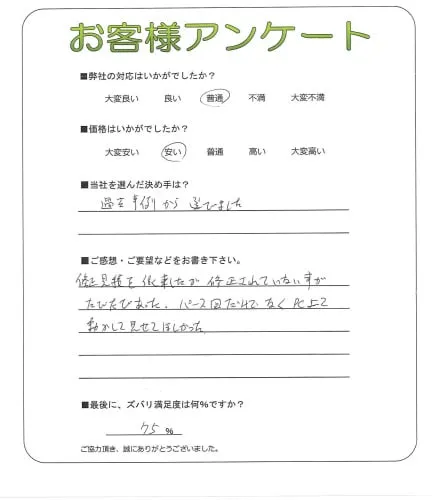 お客様アンケート
■弊社の対応はいかがでしたか？
大変良い 良い 普通 不満 大変不満
■価格はいかがでしたか？
大変安い 安い 普通 高い 大変高い
■当社を選んだ決め手は？
過去事例から選びました
■ご感想・ご要望などをお書き下さい。
修正見積を依頼したが修正されていない事が
たびたびあった。パース図だけでなくPC上で
動かして見せてほしかった
■最後に、ズバリ満足度は何％ですか？
75 %
ご協力頂き、誠にありがとうございました。